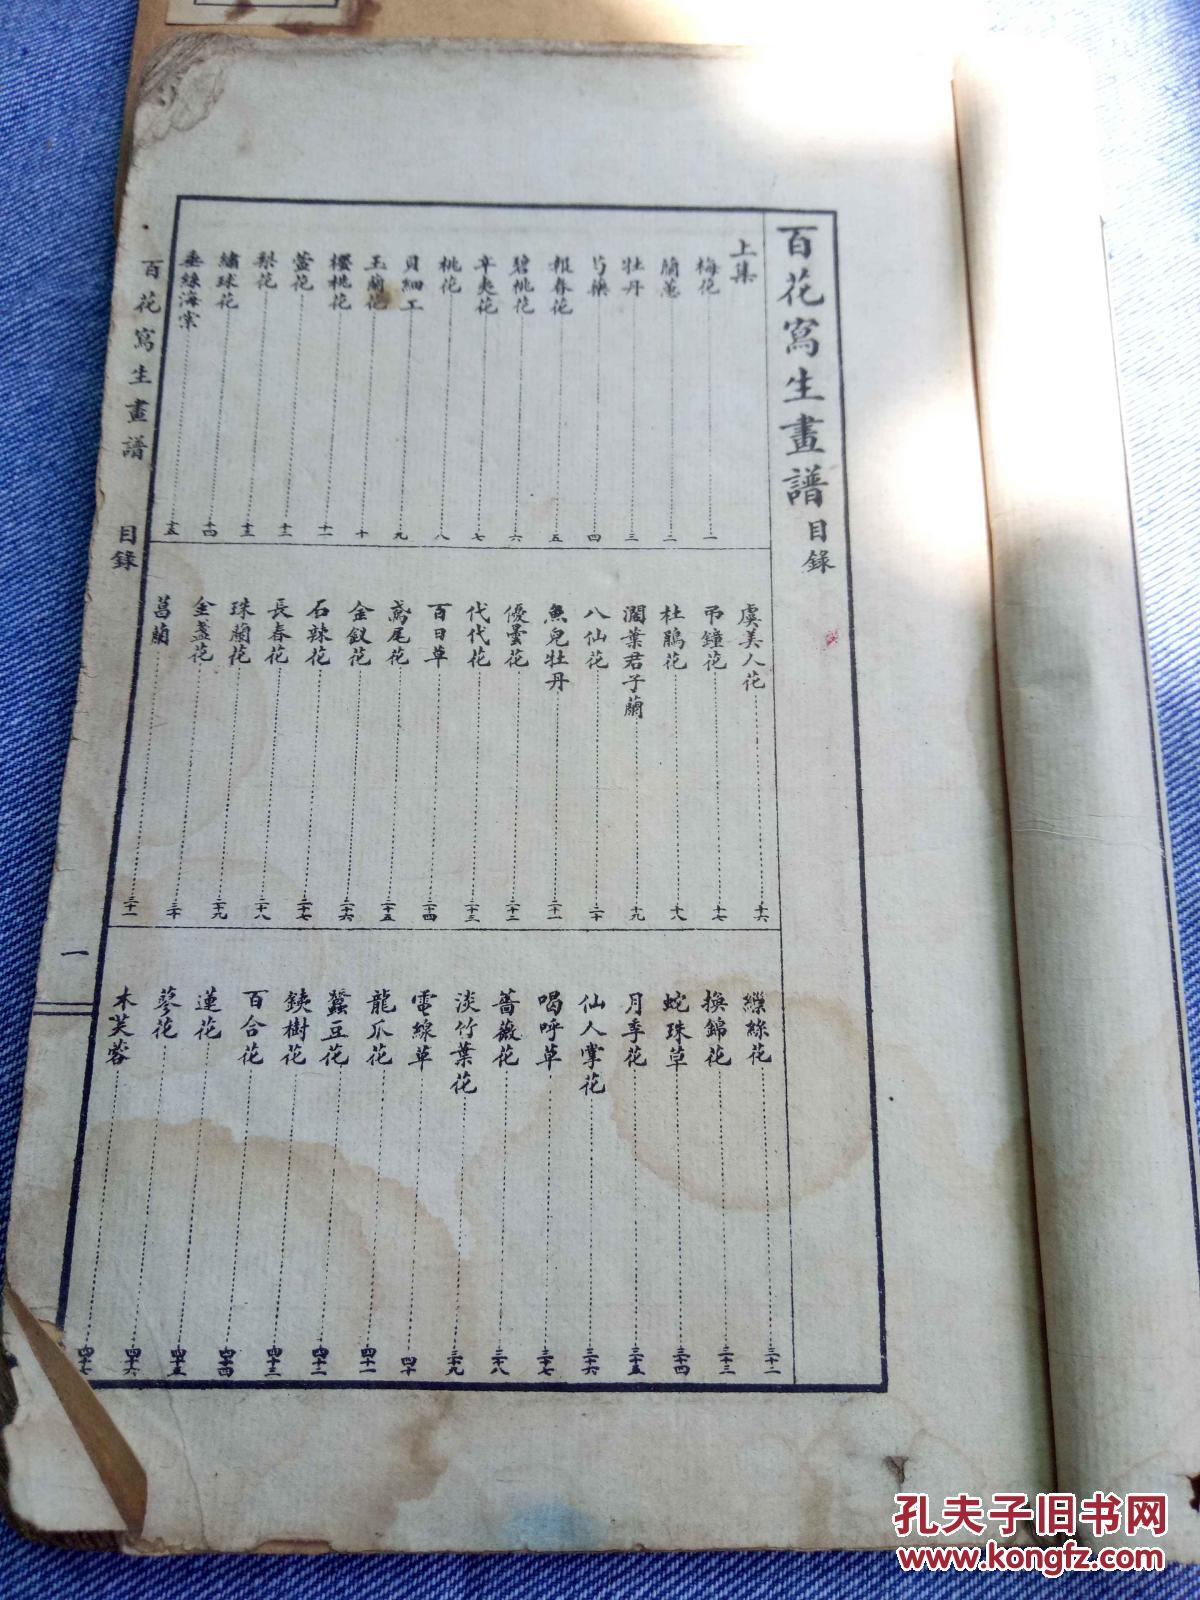 百花寫生畫譜目錄
上集
梅花 一
蘭蕙 二
牡丹 三
芍藥 四
報春花 五
碧桃花 六
辛夷花 七
桃花 八
貝細工 九
玉蘭花 十
櫻桃花 十一
萱花 十二
梨花 十三
繡球花 十四
垂絲海棠 十五
虞美人花 十六
弔鐘花 十七
杜鵑花 十八
濶葉君子蘭 十九
八仙花 二十
魚兒牡丹 二十一
優曇花 二十二
代代花 二十三
百日草 二十四
鳶尾花 二十五
金釵花 二十六
石竦花 二十七
長春花 二十八
珠蘭花 二十九
金盞花 三十
菖蘭 三十一
纙絲花 三十二
換錦花 三十三
蛇珠草 三十四
月季花 三十五
仙人掌花 三十六
喝呼草 三十七
薔薇花 三十八
淡竹葉花 三十九
電線草 四十
龍爪花 四十一
蠶豆花 四十二
銕樹花 四十三
百合花 四十四
蓮花 四十五
蓼花 四十六
木芙蓉 四十七
百花寫生畫譜 目錄 一
孔夫子旧书网
www.kongfz.com